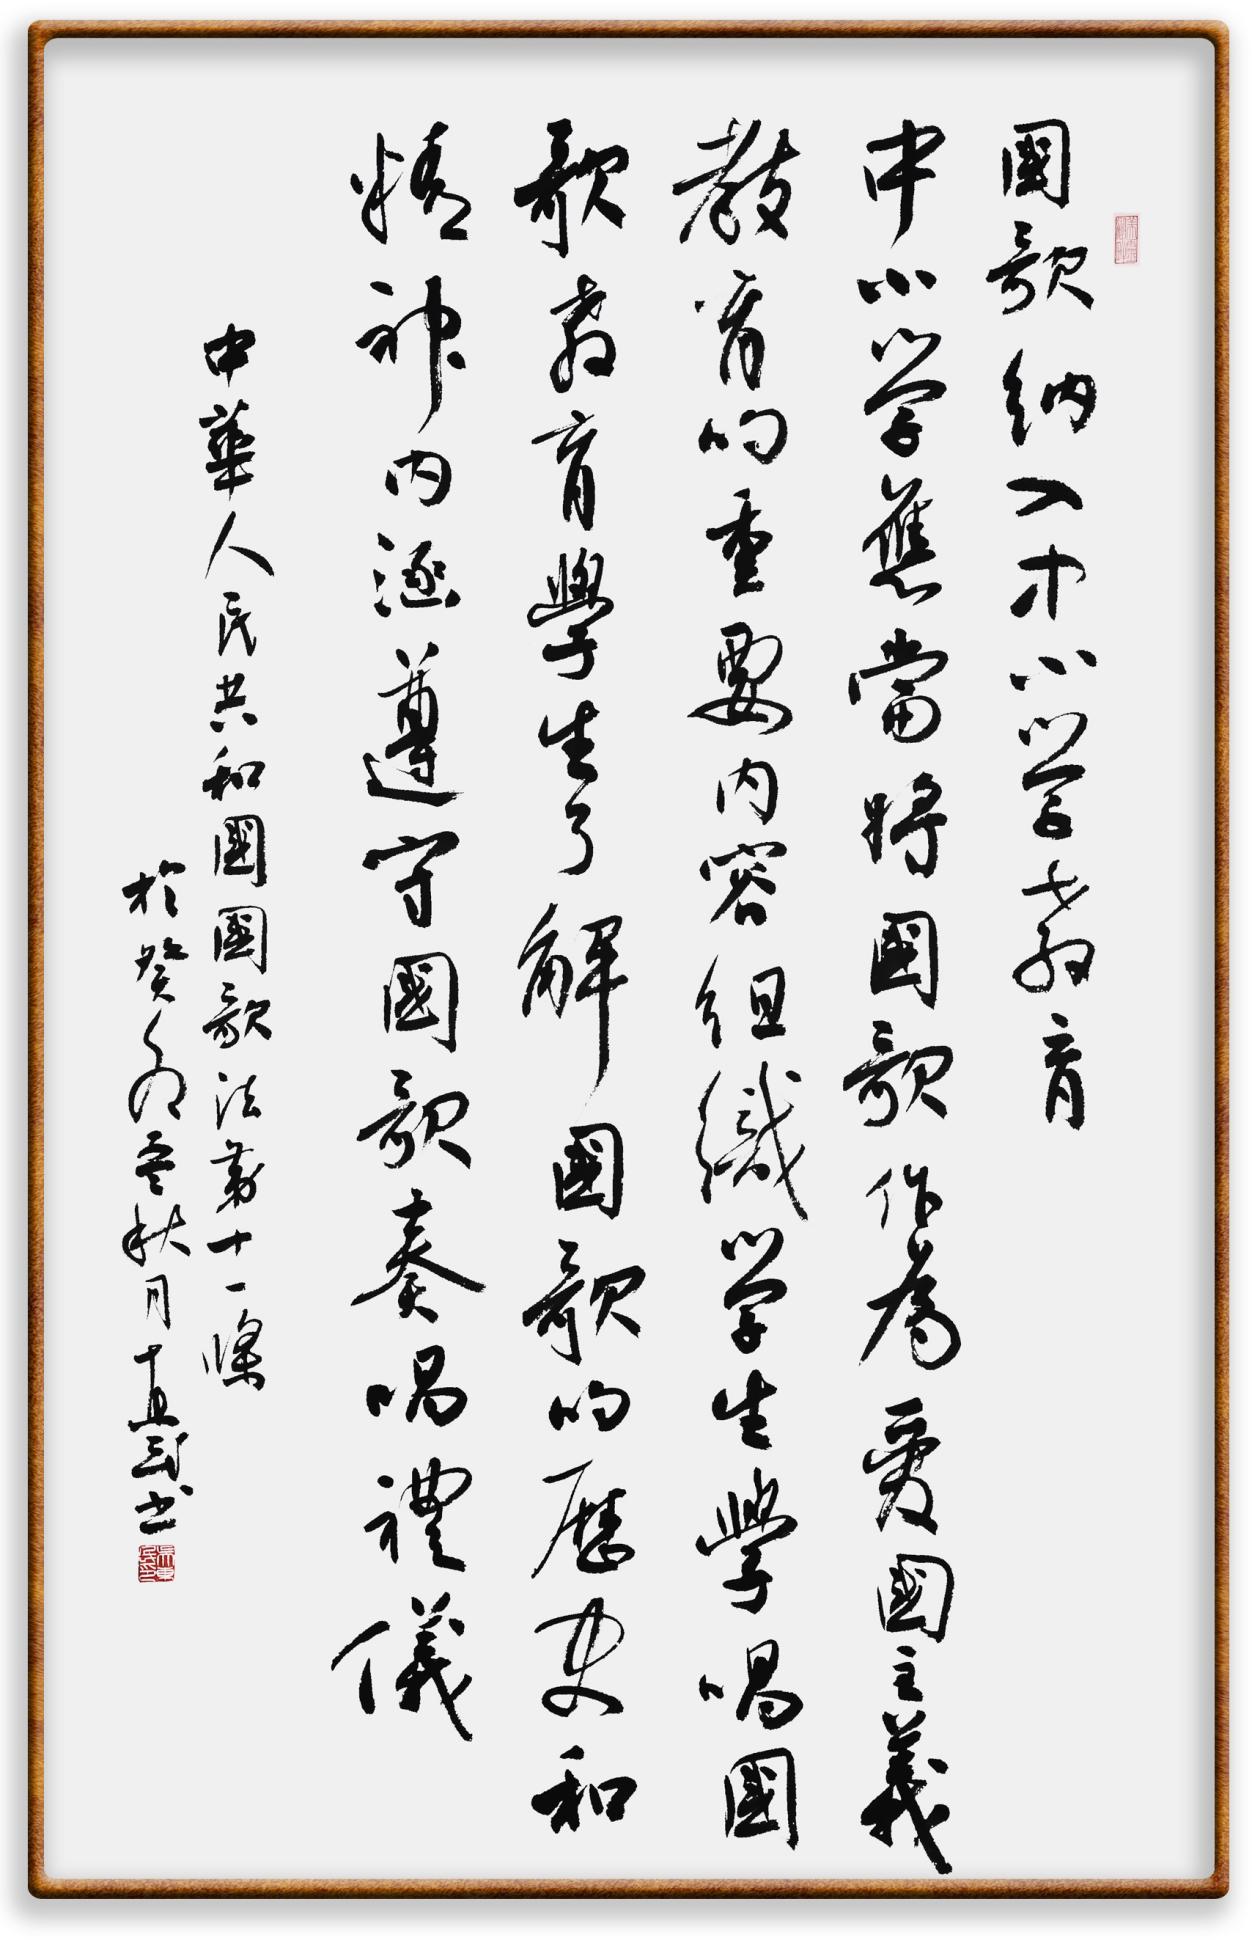 國歌納入中小学教育
中小学應當將國歌作為愛國主義
教育的重要内容組織学生學唱國
歌教育學生了解國歌的歷史和
精神内涵遵守國歌奏唱禮儀
中華人民共和國國歌法第十一條
於癸卯孟秋月书